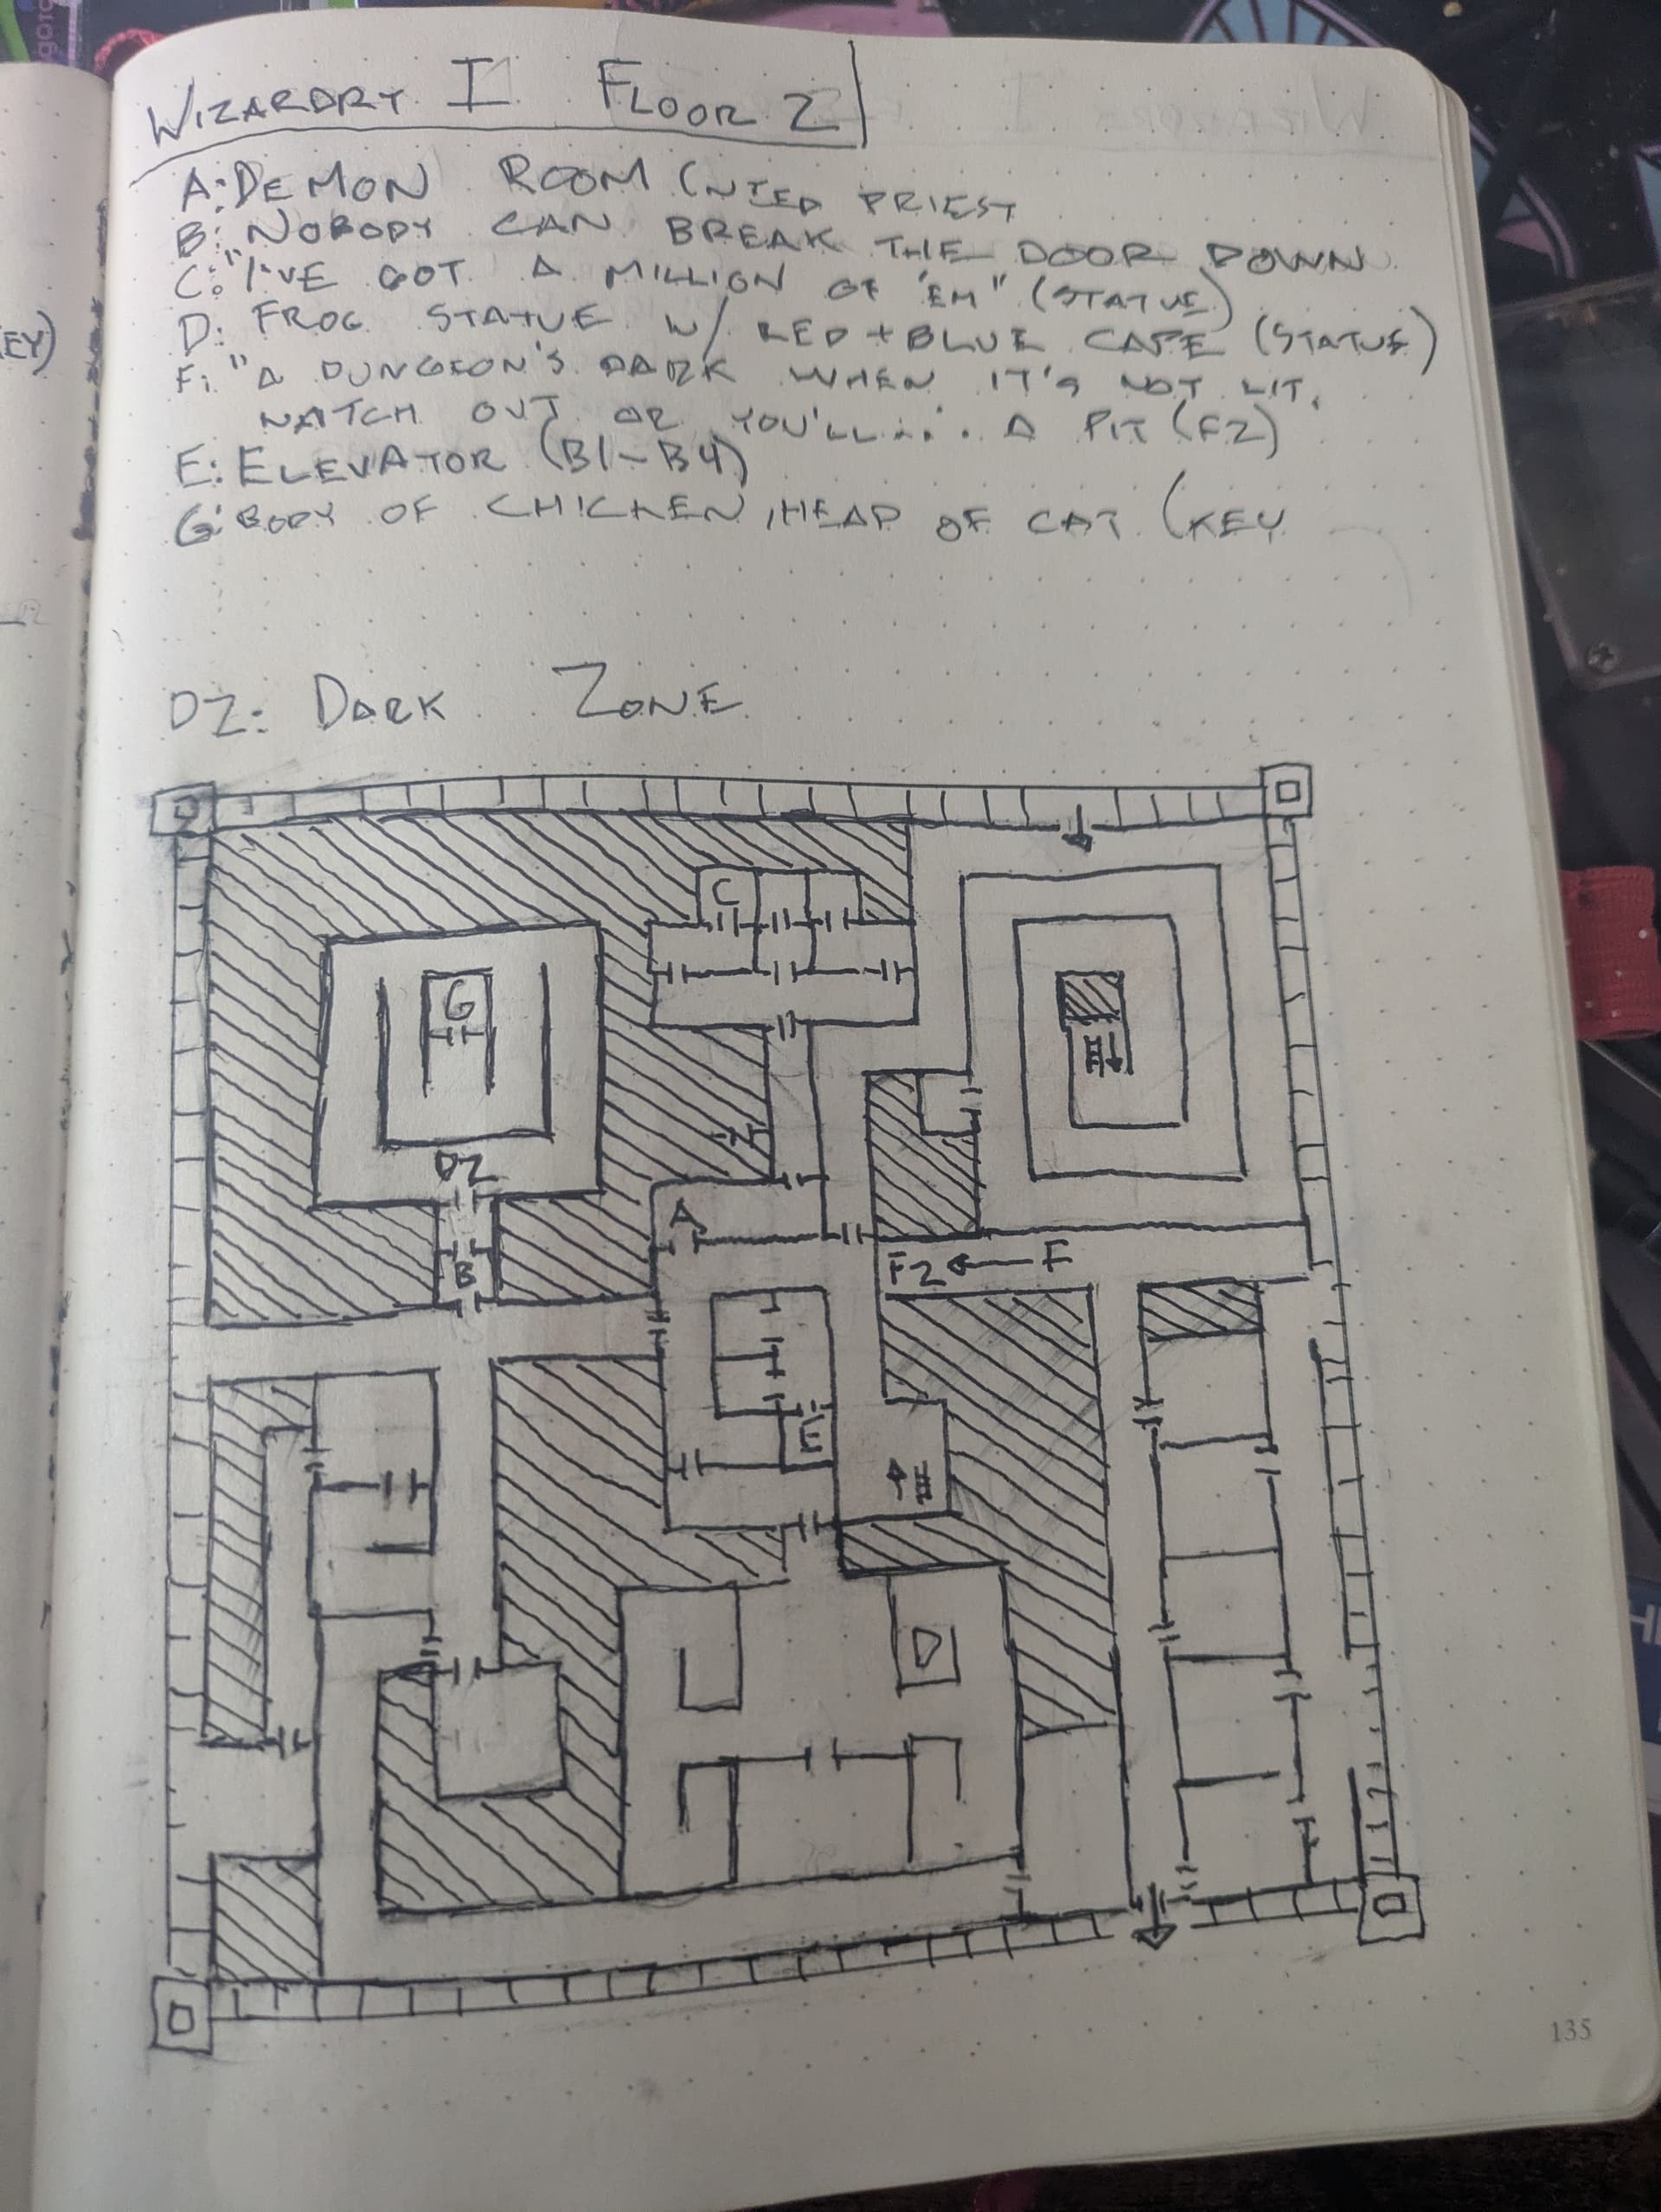 WIZARDRY I FLOOR 2
A: DEMON ROOM (NEED PRIEST
B: NOBODY CAN BREAK THE DOOR DOWN
C: "I'VE GOT A MILLION OF 'EM" (STATUE)
D: FROG STATUE W/ RED + BLUE CAPE (STATUE)
F: "A DUNGEON'S DARK WHEN IT'S NOT LIT,
WATCH OUT OR YOU'LL.... A PIT (F2)
E: ELEVATOR (B1-B4)
G: BODY OF CHICKEN, HEAD OF CAT (KEY
EY)
DZ: DARK ZONE
C
G
DZ
A
B
F2 ← F
E
D
135